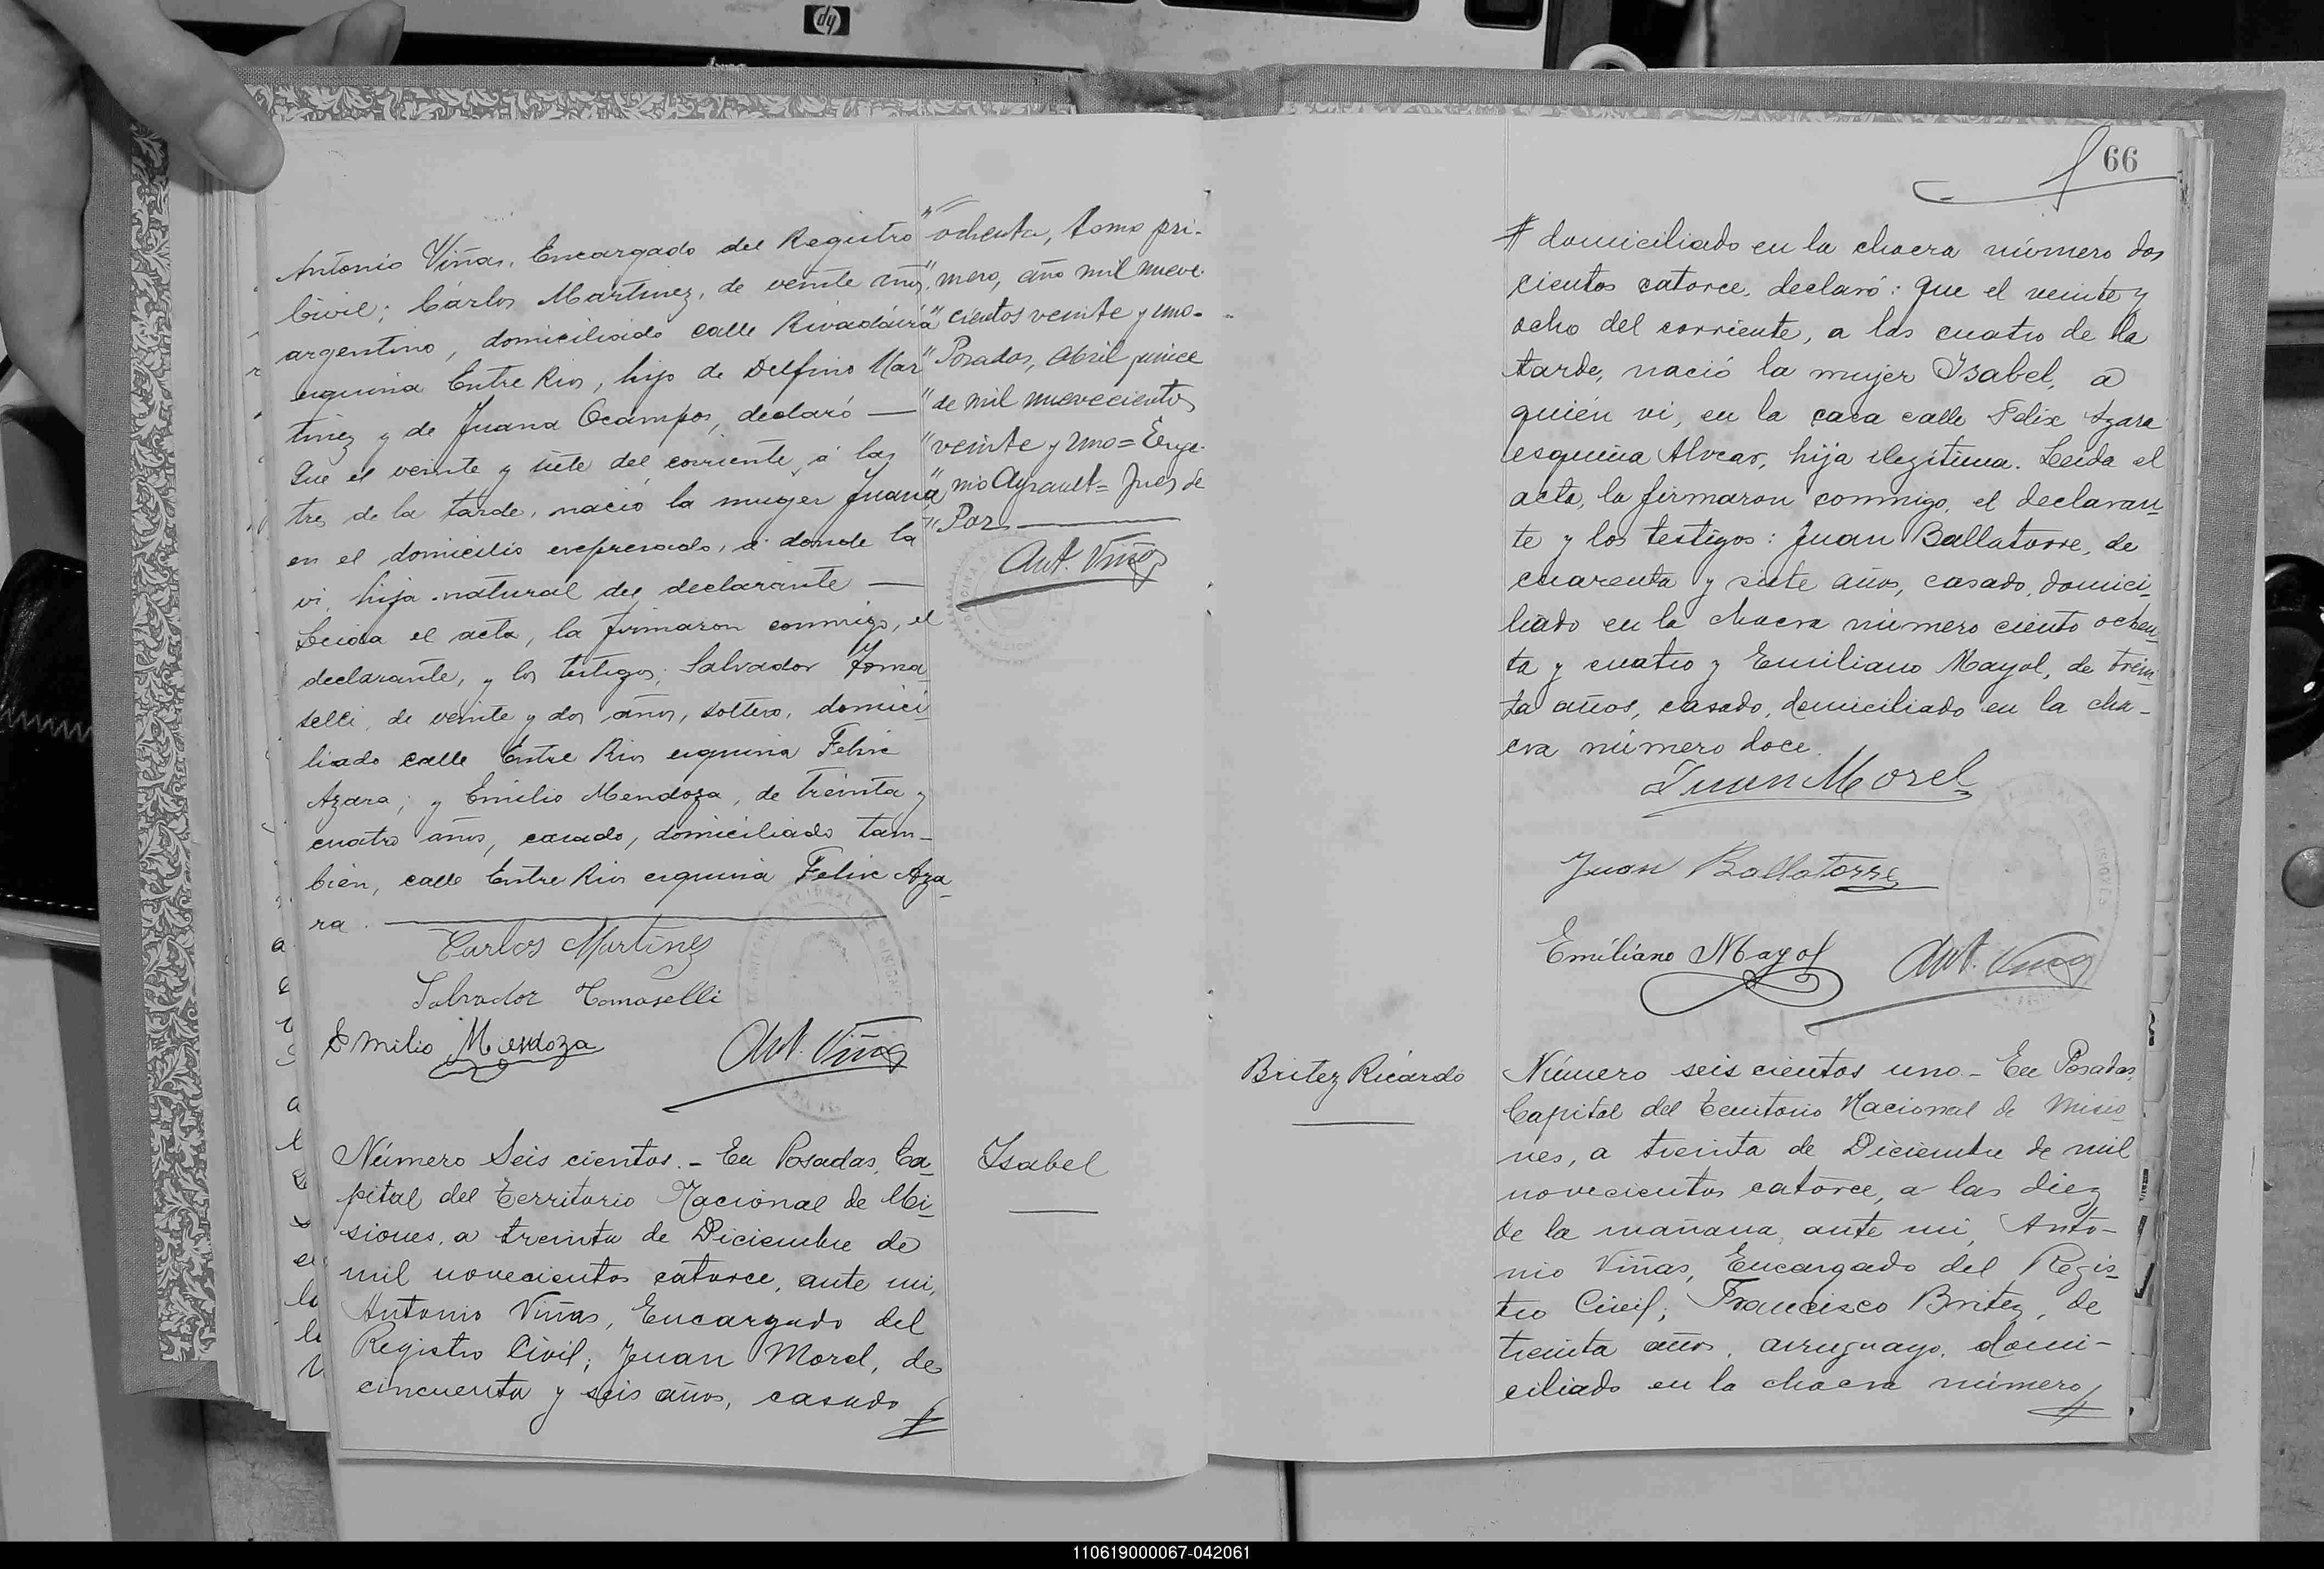 hp
Antonio Viñas, Encargado del Registro
Civil; Cárlos Martinez, de veinte años,
argentino, domiciliado calle Rivadavia
esquina Entre Rios, hijo de Delfino Mar
tinez y de Juana Ocampos, declaró —
Que el veinte y siete del corriente, á las
tres de la tarde, nació la mujer Juana,
en el domicilio expresado, á donde la
vi, hija natural del declarante —
Leida el acta, la firmaron conmigo, el
declarante, y los testigos; Salvador Toma-
selli, de veinte y dos años, soltero, domici-
liado calle Entre Rios esquina Felix
Azara; y Emilio Mendoza, de treinta y
cuatro años, casado, domiciliado tam-
bién, calle Entre Rios esquina Felix Aza-
ra. —
Carlos Martinez
Salvador Tomaselli
Emilio Mendoza
Ant. Viñas
" ochenta, tomo pri-
" mero, año mil nueve-
" cientos veinte y uno-
" Posadas, Abril quince
" de mil nuevecientos
" veinte y uno = Euge-
" nio Ayrault = Juez de
" Paz —
Ant. Viñas
Isabel
Número Seis cientos. - En Posadas, Ca-
pital del Territorio Nacional de Mi-
siones, a treinta de Diciembre de
mil novecientos catorce, ante mi,
Antonio Viñas, Encargado del
Registro Civil; Juan Morel, de
cincuenta y seis años, casado #
66
# domiciliado en la chacra número dos
cientos catorce, declaró: Que el veinte y
ocho del corriente, a las cuatro de la
tarde, nació la mujer Isabel, a
quién vi, en la casa calle Felix Azara
esquina Alvear, hija ilegítima. Leida el
acta, la firmaron conmigo, el declaran-
te y los testigos: Juan Ballatorre, de
cuarenta y siete años, casado, domici-
liado en la chacra número ciento ochen-
ta y cuatro y Emiliano Mayol, de trein-
ta años, casado, domiciliado en la cha-
cra número doce.
Juan Morel
Juan Ballatorre
Emiliano Mayol
Ant. Viñas
Britez Ricardo
Número seis cientos uno - En Posadas,
Capital del Territorio Nacional de Misio-
nes, a treinta de Diciembre de mil
novecientos catorce, a las diez
de la mañana, ante mi, Anto-
nio Viñas, Encargado del Regis-
tro Civil; Francisco Britez, de
treinta años, uruguayo, domi-
ciliado en la chacra número #
110619000067-042061